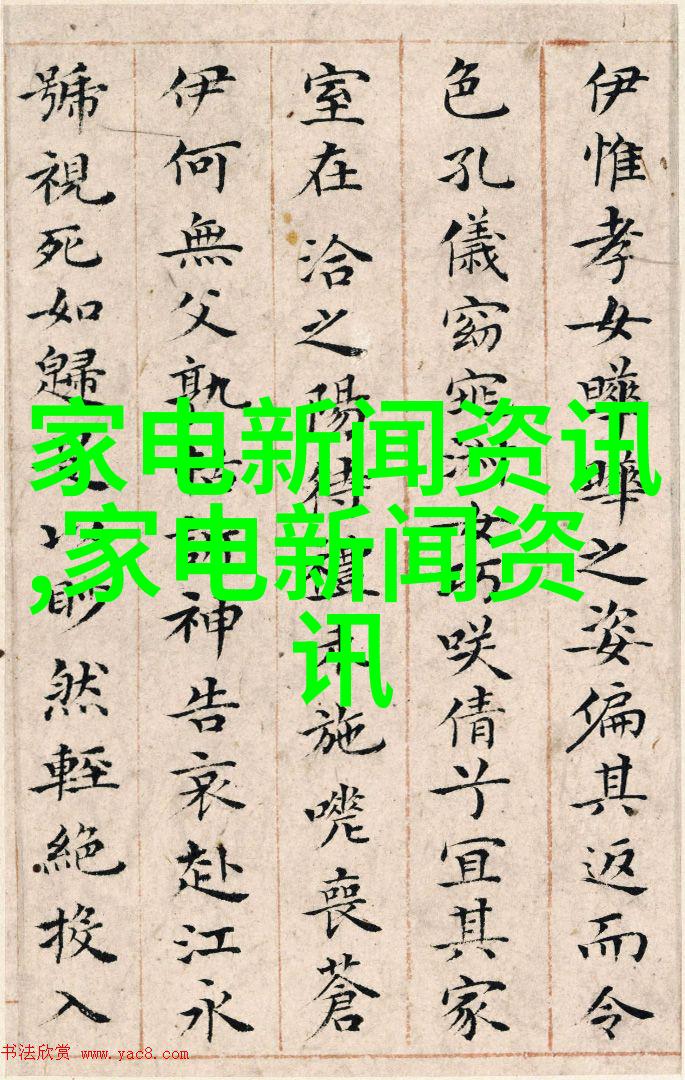 伊惟孝女曄曄之姿偏其返而令
色孔儀窈窕淑女巧咲倩兮宜其家
室在洽之陽待禮未施嗟喪蒼
伊何無父孰怙訴神告哀赴江永
號視死如歸是以眇然輕絕投入
家电新闻资讯
,家电新闻资
讯
书法欣赏 www.yac8.com